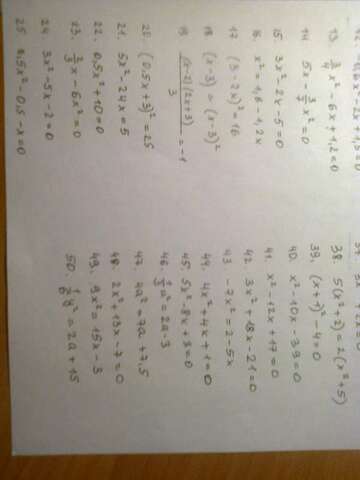 13. 3/4 x² - 6x + 1,2 = 0
14. 5x - 3/5 x² = 0
15. 3x² - 2x - 5 = 0
16. x² = 1,6 - 1,2x
17. (3 - 2x)² = 16
18. (x - 3) = (x - 3)²
19. (x-2)(2x+3)/3 = -1
20. (0,5x + 3)² = 25
21. 5x² - 24x = 5
22. 0,5x² + 10 = 0
23. 2/3 x - 6x² = 0
24. 3x² - 5x - 2 = 0
25. 1,5x² - 0,5 - x = 0
38. 5(x² + 2) = 2(x² + 5)
39. (x + 1)² - 4 = 0
40. x² - 10x - 39 = 0
41. x² - 12x + 17 = 0
42. 3x² + 18x - 21 = 0
43. -7x² = 2 - 5x
44. 4x² + 4x + 1 = 0
45. 5x² - 8x + 3 = 0
46. 1/3 a² = 2a - 3
47. 4a² = 7a + 7,5
48. 2x² + 13x - 7 = 0
49. 9x² = 15x - 3
50. 1/6 y² = 2a + 15